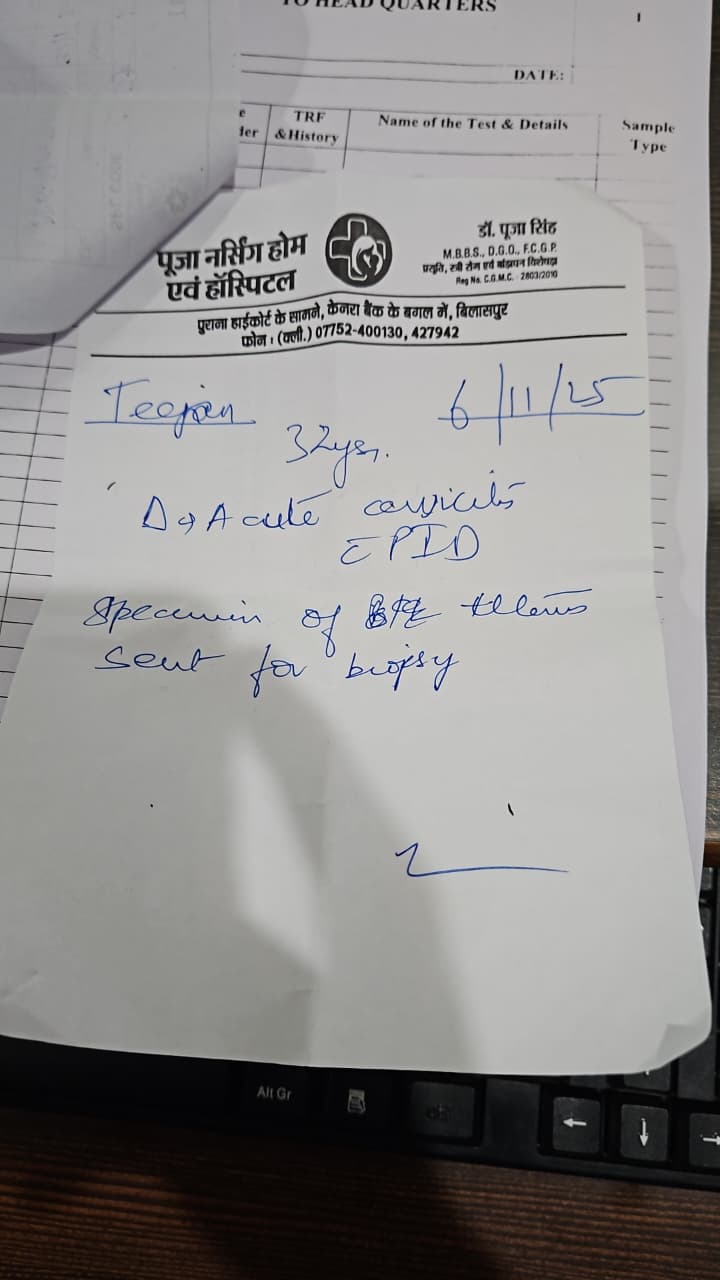 TO HEAD QUARTERS
1
DATE:
TRF
&History
Name of the Test & Details
Sample
Type
पूजा नर्सिंग होम
एवं हॉस्पिटल
डॉ. पूजा सिंह
M.B.B.S., D.G.O., F.C.G.P.
प्रसूति, स्त्री रोग एवं बांझपन विशेषज्ञ
Reg No. C.G.M.C. - 2803/2010
पुराना हाईकोर्ट के सामने, केनरा बैंक के बगल में, बिलासपुर
फोन : (क्ली.) 07752-400130, 427942
Teejan
6/11/25
32yrs.
Δ → Acute cervicitis
c̄ PID
Specimen of
sent for biopsy
Alt Gr